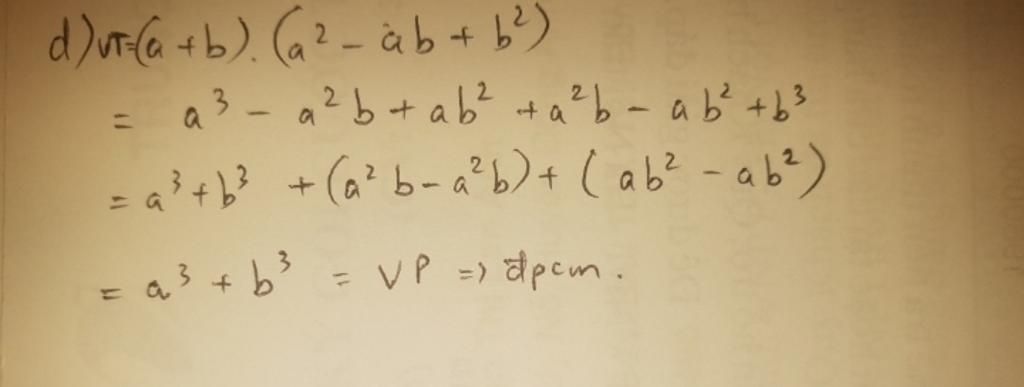 d) VT=(a+b).(a² - ab + b²)
= a³ - a²b + ab² + a²b - ab² + b³
= a³ + b³ + (a²b - a²b) + (ab² - ab²)
= a³ + b³ = VP => đpcm.